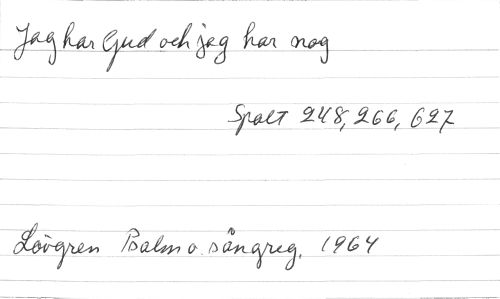 Jag har Gud och jag har nog
Spalt 248, 266, 627
Lövgren Psalm o. sångreg. 1964